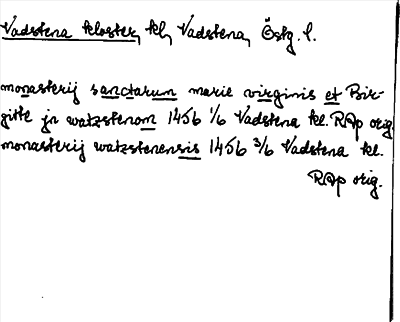 Vadstena kloster, kl, Vadstena, Östg. l.
monasterij sanctarum marie virginis et Bir-
gitte jn watzstenom 1456 1/6 Vadstena kl. RAp orig.
monasterij watzstenensis 1456 3/6 Vadstena kl.
RAp orig.